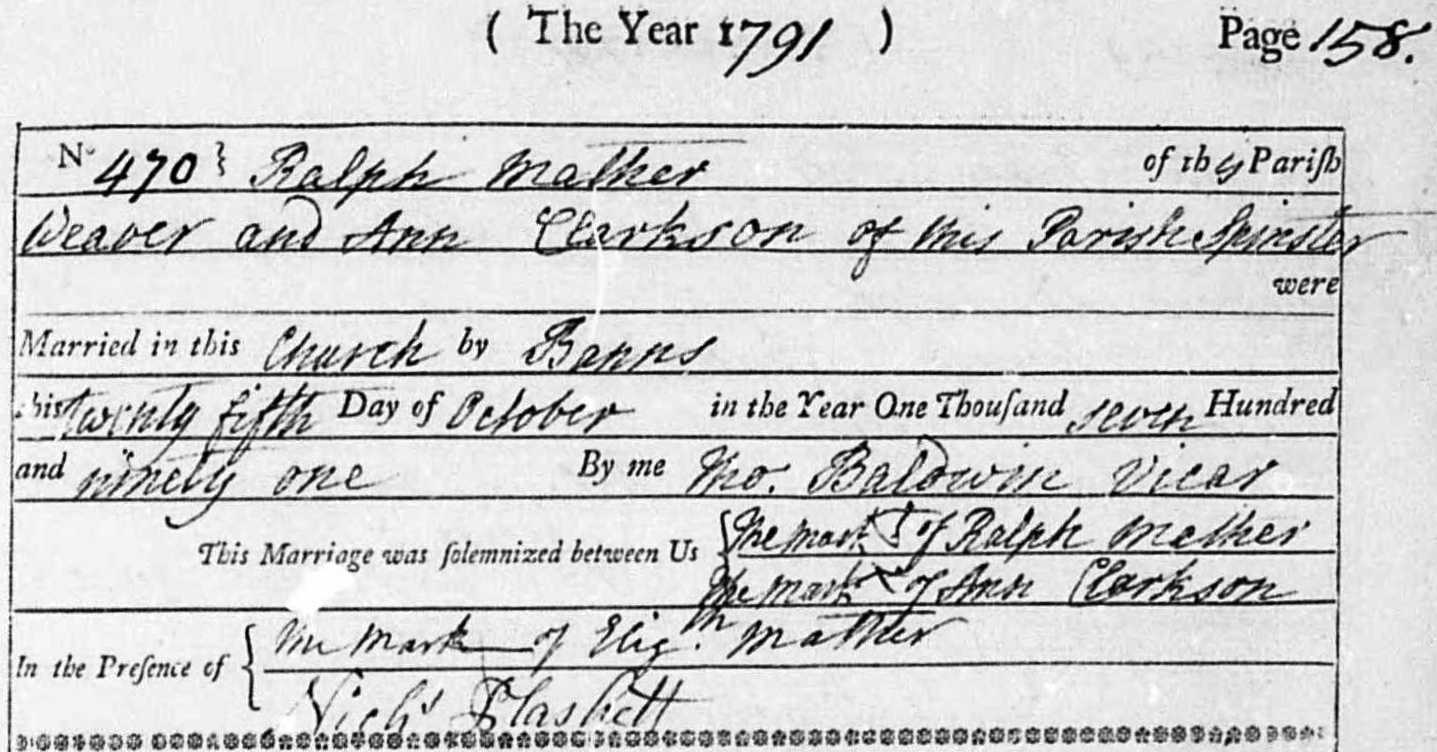 ( The Year 1791 ) Page 158.
No 470 } Ralph Mather of this Parish
Weaver and Ann Clarkson of this Parish Spinster
were
Married in this Church by Banns
this twenty fifth Day of October in the Year One Thouſand seven Hundred
and ninety one By me Tho. Baldwin Vicar
This Marriage was ſolemnized between Us { The mark X of Ralph Mather
The mark X of Ann Clarkson
In the Preſence of { The Mark of Eliz.th Mather
Nichs Plaskett